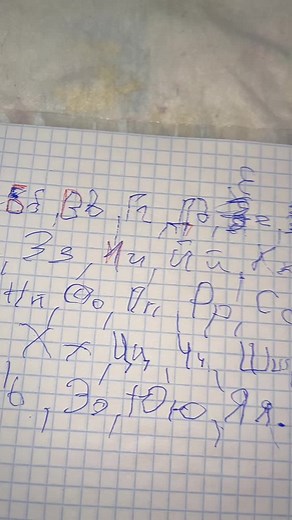 Бб, Вв, Гг, Дд, Ее,
, Зз, Ии, Йй, Кк
Нн, Оо, Пп, Рр, Сс
Хх, Цц, Чч, Шш
ь, Ээ, Юю, Яя.